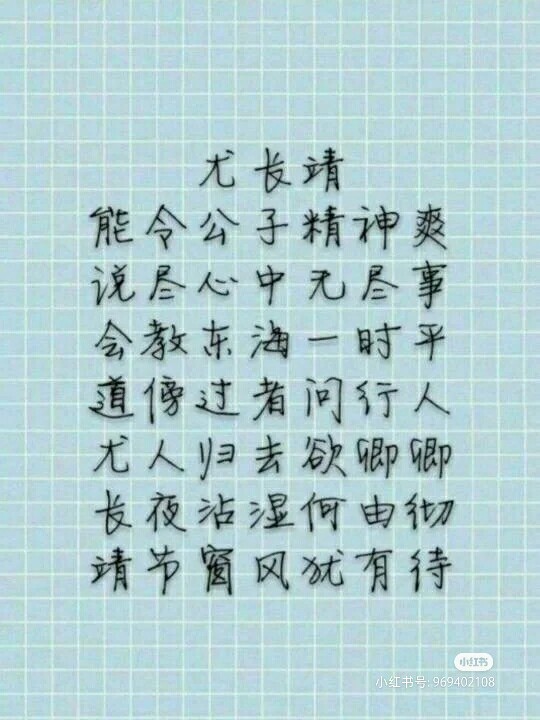 尤长靖
能令公子精神爽
说尽心中无尽事
会教东海一时平
道傍过者问行人
尤人归去欲卿卿
长夜沾湿何由彻
靖节窗风犹有待
小红书
小红书号: 969402108